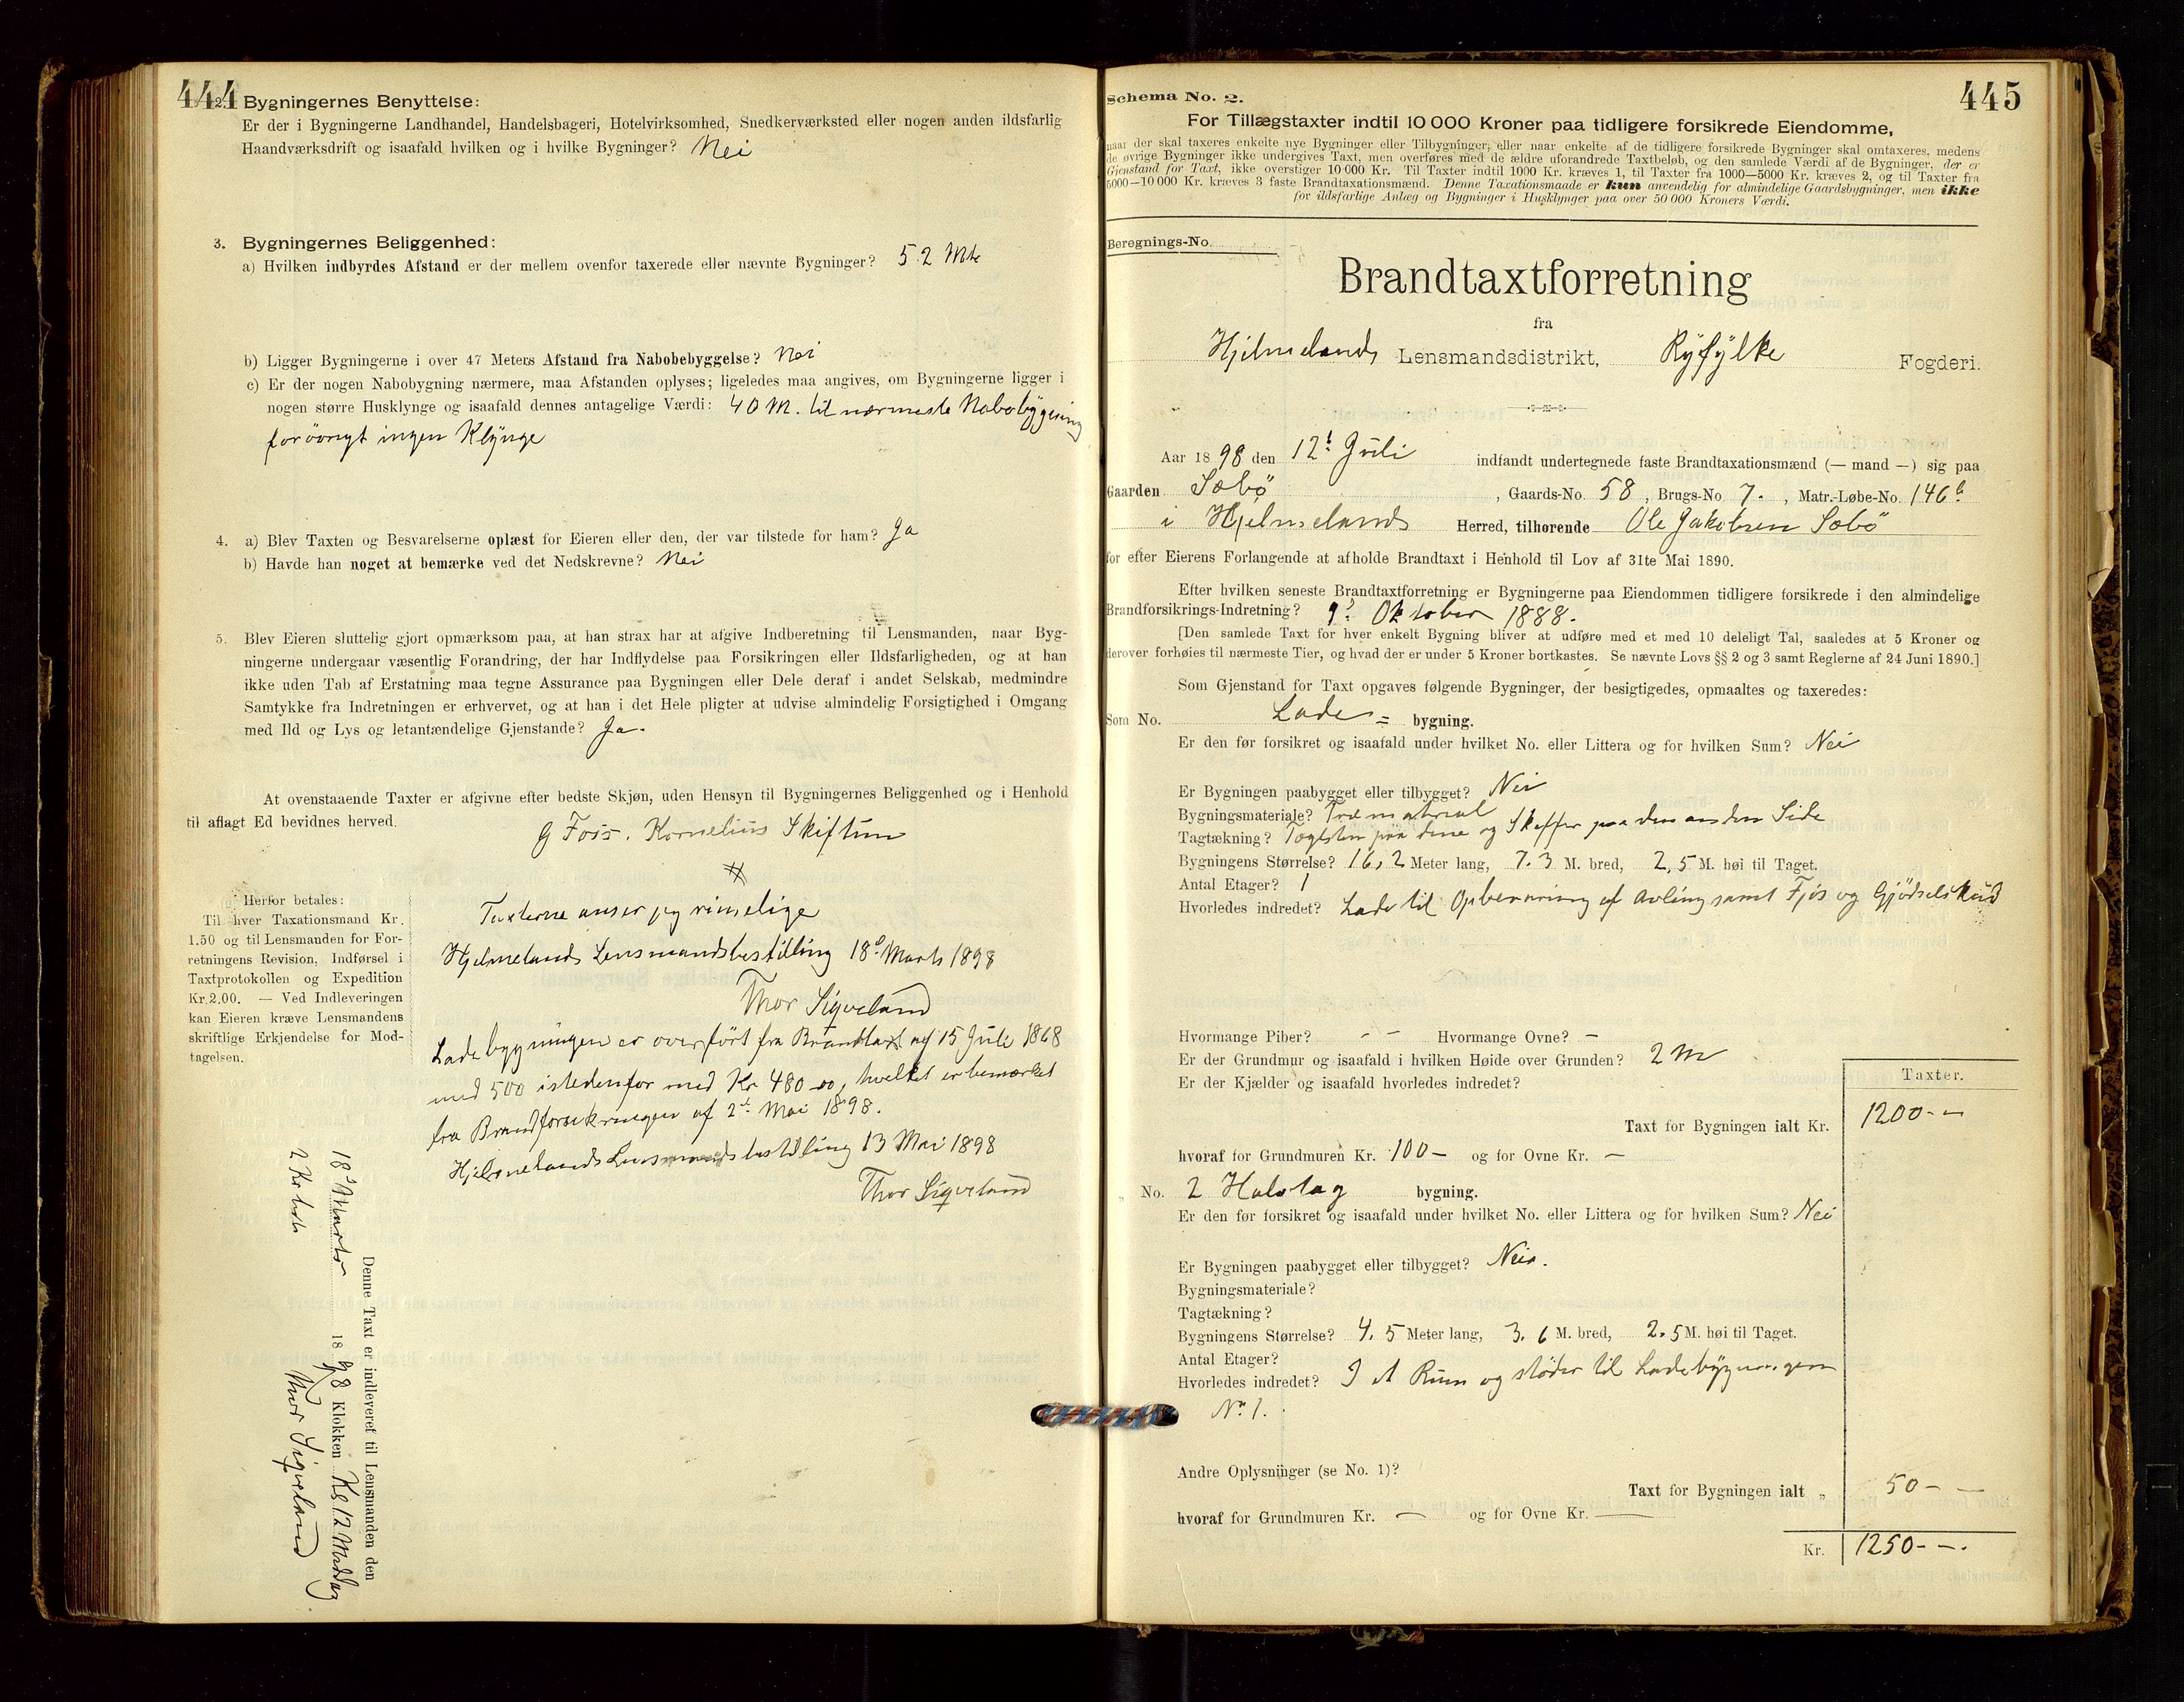 444
2. Bygningernes Benyttelse:
Er der i Bygningerne Landhandel, Handelsbageri, Hotelvirksomhed, Snedkerværksted eller nogen anden ildsfarlig
Haandværksdrift og isaafald hvilken og i hvilke Bygninger? Nei
3. Bygningernes Beliggenhed:
a) Hvilken indbyrdes Afstand er der mellem ovenfor taxerede eller nævnte Bygninger? 5.2 Mt
b) Ligger Bygningerne i over 47 Meters Afstand fra Nabobebyggelse? Nei
c) Er der nogen Nabobygning nærmere, maa Afstanden oplyses; ligeledes maa angives, om Bygningerne ligger i
nogen større Husklynge og isaafald dennes antagelige Værdi: 40 M. til nærmeste Nabobygning
forövrigt ingen Klynge
4. a) Blev Taxten og Besvarelserne oplæst for Eieren eller den, der var tilstede for ham? Ja
b) Havde han noget at bemærke ved det Nedskrevne? Nei
5. Blev Eieren sluttelig gjort opmærksom paa, at han strax har at afgive Indberetning til Lensmanden, naar Byg-
ningerne undergaar væsentlig Forandring, der har Indflydelse paa Forsikringen eller Ildsfarligheden, og at han
ikke uden Tab af Erstatning maa tegne Assurance paa Bygningen eller Dele deraf i andet Selskab, medmindre
Samtykke fra Indretningen er erhvervet, og at han i det Hele pligter at udvise almindelig Forsigtighed i Omgang
med Ild og Lys og letantændelige Gjenstande? Ja.
At ovenstaaende Taxter er afgivne efter bedste Skjøn, uden Hensyn til Bygningernes Beliggenhed og i Henhold
til aflagt Ed bevidnes herved.
G Fois. Kornelius Skiftun
Herfor betales:
Til hver Taxationsmand Kr.
1.50 og til Lensmanden for For-
retningens Revision, Indførsel i
Taxtprotokollen og Expedition
Kr. 2.00. — Ved Indleveringen
kan Eieren kræve Lensmandens
skriftlige Erkjendelse for Mod-
tagelsen.
Taxterne anser jeg rimelige
Hjelmelands Lensmandsbestilling 18 Marts 1898
Thor Sigveland
Ladebygningen er overført fra Brandtaxt af 15 Juli 1868
med 500 istedenfor med Kr 480 00, hvilket er bemærket
fra Brandforsikringen af 2 Mai 1898.
Hjelmelands Lensmandsbestilling 13 Mai 1898
Thor Sigveland
Denne Taxt er indleveret til Lensmanden den
18 Marts 1898 Klokken Kl 12 Middag
2 Kr
Thor Sigveland
445
Schema No. 2.
For Tillægstaxter indtil 10 000 Kroner paa tidligere forsikrede Eiendomme,
naar der skal taxeres enkelte nye Bygninger eller Tilbygninger, eller naar enkelte af de tidligere forsikrede Bygninger skal omtaxeres, medens
de øvrige Bygninger ikke undergives Taxt, men overføres med de ældre uforandrede Taxtbeløb, og den samlede Værdi af de Bygninger, der er
Gjenstand for Taxt, ikke overstiger 10 000 Kr. Til Taxter indtil 1000 Kr. kræves 1, til Taxter fra 1000—5000 Kr. kræves 2, og til Taxter fra
5000—10 000 Kr. kræves 3 faste Brandtaxationsmænd. Denne Taxationsmaade er kun anvendelig for almindelige Gaardsbygninger, men ikke
for ildsfarlige Anlæg og Bygninger i Husklynger paa over 50 000 Kroners Værdi.
Beregnings-No.
Brandtaxtforretning
fra
Hjelmelands Lensmandsdistrikt, Ryfylke Fogderi.
Aar 1898 den 12t Juli indfandt undertegnede faste Brandtaxationsmænd (— mand —) sig paa
Gaarden Sæbö, Gaards-No. 58, Brugs-No. 7., Matr.-Løbe-No. 146b
i Hjelmelands Herred, tilhørende Ole Jakobsen Sæbö
for efter Eierens Forlangende at afholde Brandtaxt i Henhold til Lov af 31te Mai 1890.
Efter hvilken seneste Brandtaxtforretning er Bygningerne paa Eiendommen tidligere forsikrede i den almindelige
Brandforsikrings-Indretning? 9 Oktober 1888.
[Den samlede Taxt for hver enkelt Bygning bliver at udføre med et med 10 deleligt Tal, saaledes at 5 Kroner og
derover forhøies til nærmeste Tier, og hvad der er under 5 Kroner bortkastes. Se nævnte Lovs §§ 2 og 3 samt Reglerne af 24 Juni 1890.]
Som Gjenstand for Taxt opgaves følgende Bygninger, der besigtigedes, opmaaltes og taxeredes:
Som No. Lade= bygning.
Er den før forsikret og isaafald under hvilket No. eller Littera og for hvilken Sum? Nei
Er Bygningen paabygget eller tilbygget? Nei
Bygningsmateriale? Træmaterial
Tagtækning? Taglsten paa ene og Skiffer paa den anden Side
Bygningens Størrelse? 16,2 Meter lang, 7.3 M. bred, 2,5 M. høi til Taget.
Antal Etager? 1
Hvorledes indredet? Lade til Opbevaring af Avling samt Fjös og Gjödselskud
Hvormange Piber? - - Hvormange Ovne? -
Er der Grundmur og isaafald i hvilken Høide over Grunden? 2 M
Er der Kjælder og isaafald hvorledes indredet?
Taxter.
Taxt for Bygningen ialt Kr. 1200--
hvoraf for Grundmuren Kr. 100 - og for Ovne Kr. -
" No. 2 bygning.
Er den før forsikret og isaafald under hvilket No. eller Littera og for hvilken Sum? Nei
Er Bygningen paabygget eller tilbygget? Nei.
Bygningsmateriale?
Tagtækning?
Bygningens Størrelse? 4.5 Meter lang, 3.6 M. bred, 2.5 M. høi til Taget.
Antal Etager?
Hvorledes indredet? I et Rum og stöder til Ladebygningen
No 1.
Andre Oplysninger (se No. 1)?
Taxt for Bygningen ialt „ 50 - -
hvoraf for Grundmuren Kr. — og for Ovne Kr. —
Kr. 1250 - -.